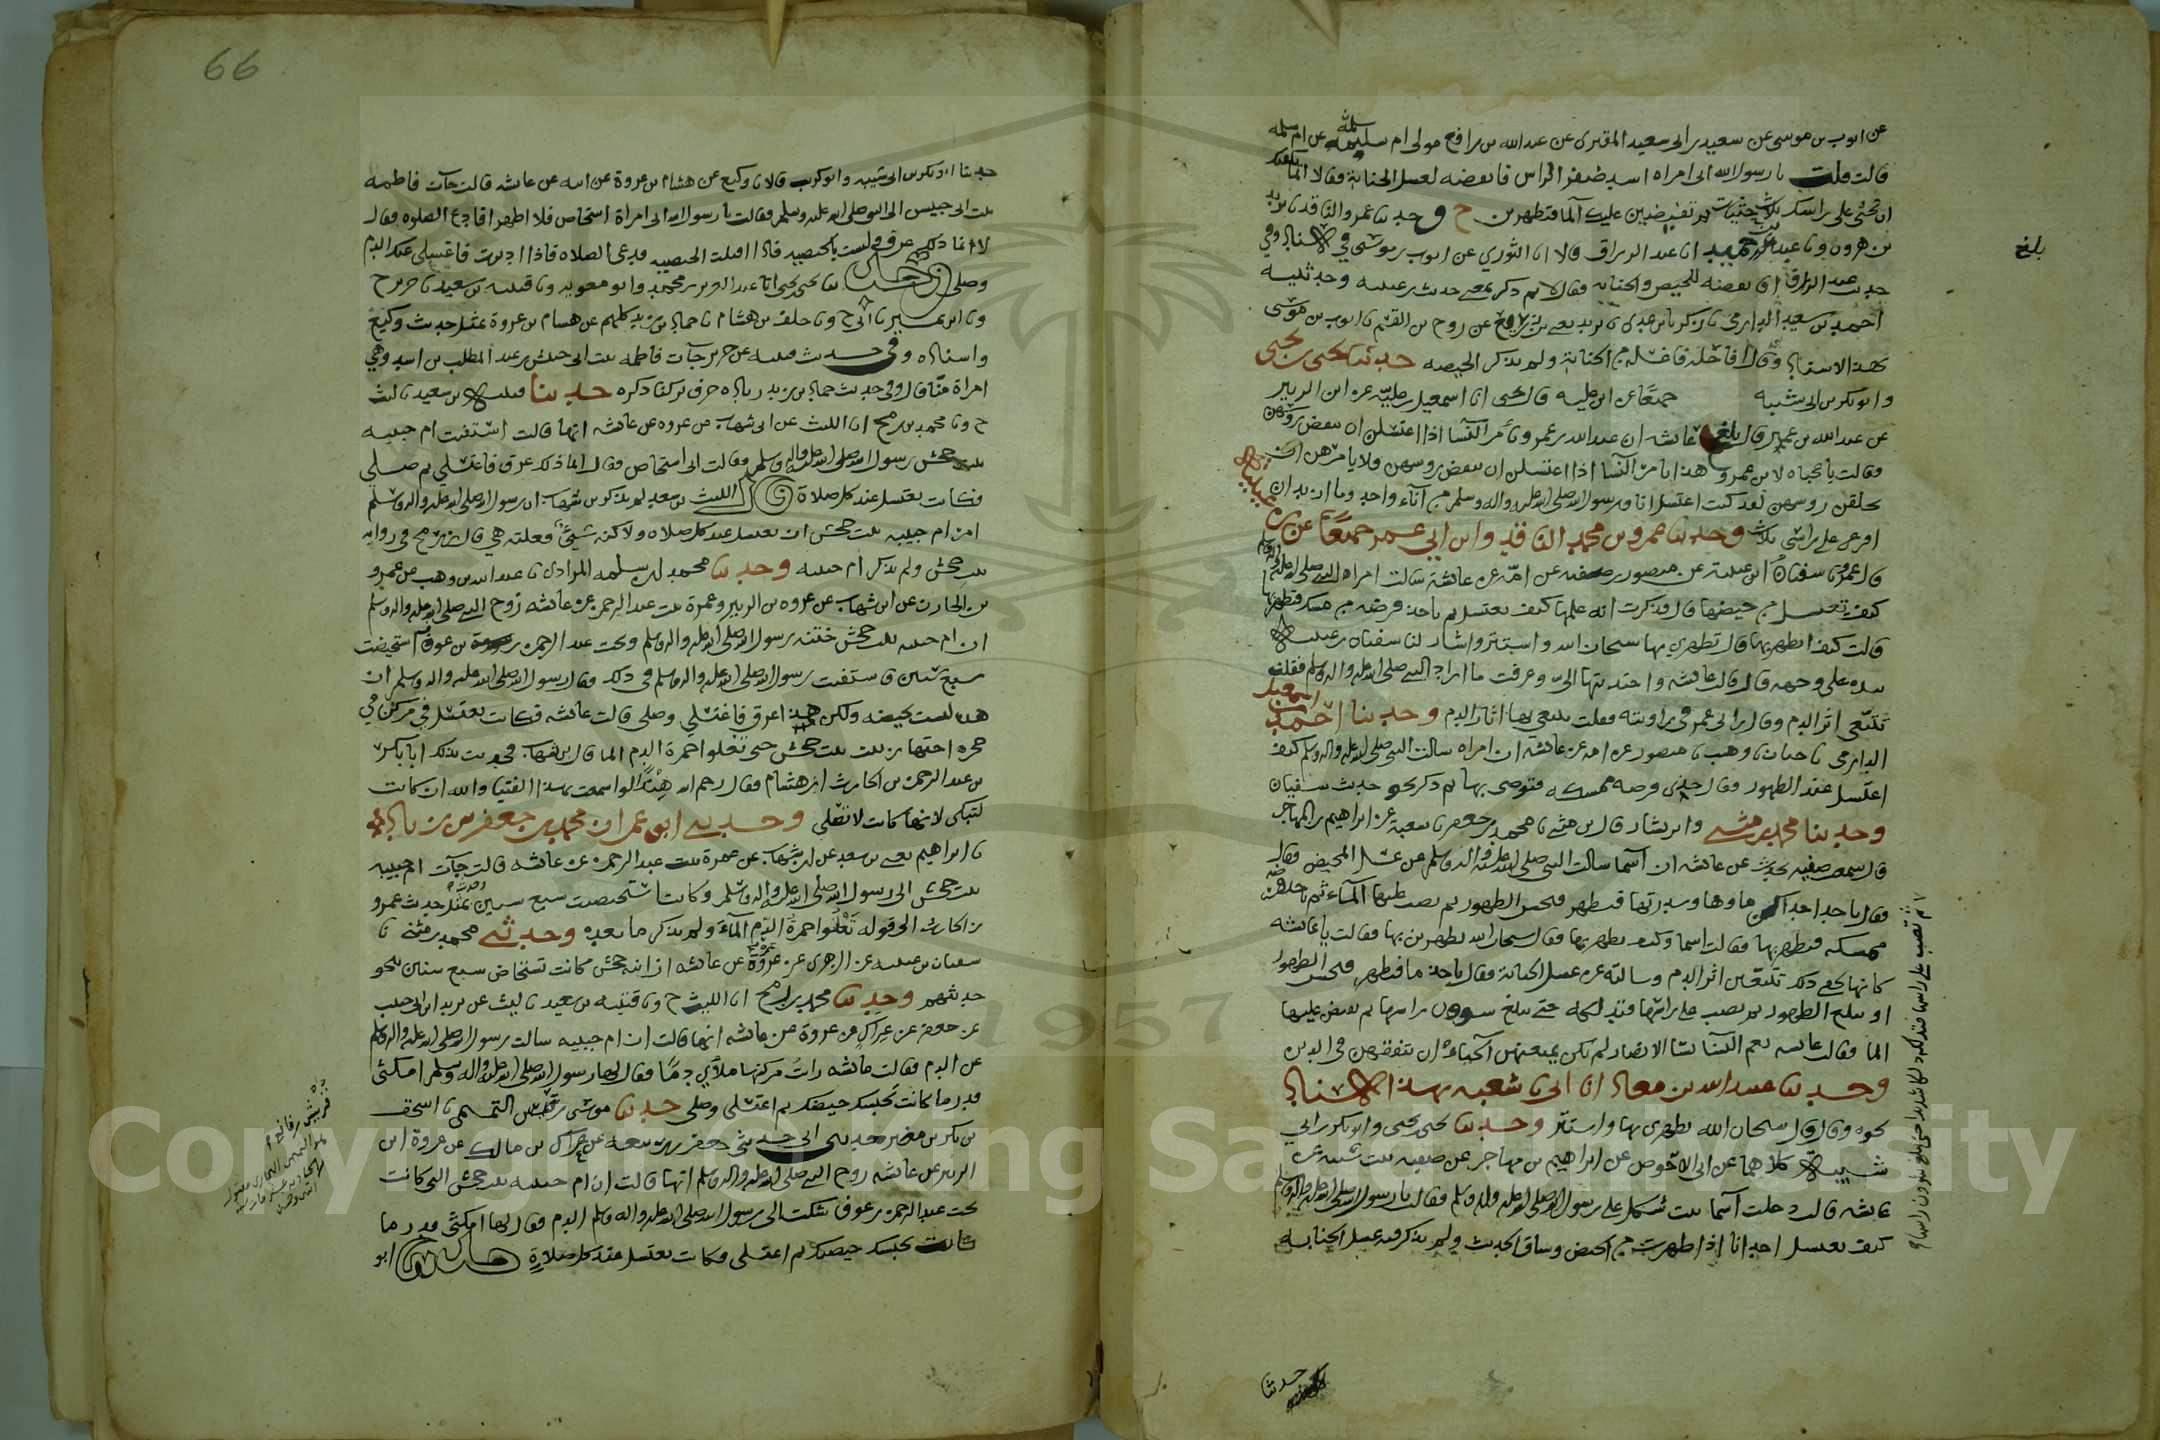 عن ايوب بن موسى عن سعيد بن ابى سعيد المقبرى عن عبد الله بن رافع مولى ام سلمه عن ام سلمه
قالت قلت يا رسول الله انى امراه اشد ضفر الراس فانقضه لغسل الجنابة فقال لا انما يكفيك
ان تحثى على راسك ثلاث حثيات ثم تفيضين عليك الما فتطهرين ح وحدثنا عمرو الناقد نا يزيد
بن هرون ونا عبد بن حميد انا عبد الرزاق قالا انا الثوري عن ايوب بن موسى في هذا الاسناد وفي
حديث عبد الرزاق افانقضه للحيض والجنابه فقال لا ثم ذكر بمعنى حديث بن عيينه وحدثنيه
احمد بن سعيد الدارمي نا زكريا بن عدى نا يزيد يعنى بن زريع عن روح بن القسم نا ايوب بن موسى
بهذا الاسناد وقال افاحله فاغسله من الجنابة ولم يذكر الحيضه حدثنا يحيى بن يحيى
وابو بكر بن ابى شيبه جميعا عن ابن عليه قال يحيى انا اسمعيل بن عليه عن ابى الزبير
عن عبد الله بن عمير قال بلغ عائشه ان عبد الله بن عمرو يأمر النسا اذا اغتسلن ان ينقضن روسهن
وقالت يا عجباه لابن عمرو هذا يامر النسا اذا اغتسلن ان ينقضن روسهن ولا يامرهن ان
يحلقن روسهن لقد كنت اغتسل انا ورسول الله صلى الله عليه واله وسلم من آناء واحد وما ازيد ان
افرغ على راسى ثلاث وحدثنا عمرو بن محمد الناقد وابن ابي عمر جميعا عن بن عيينه
قال عمرو نا سفيان ابن عيينة عن منصور بن صفيه عن امه عن عائشة سالت امراه النبي صلى الله عليه واله وسلم
كيف تغتسل من حيضها قال فذكرت انه علمها كيف تغتسل ثم تاخذ فرصه من مسك فتطهر بها
قالت كيف اتطهر بها قال تطهري بها سبحان الله واستتر واشار لنا سفيان بن عيينة
بيده على وجهه قال قالت عائشه واجتذبتها الي وعرفت ما اراد النبي صلى الله عليه واله وسلم فقلت
تتبعي اثر الدم وقال بن ابى عمر في روايته فقلت تتبعي بها اثار الدم وحدثنا احمد بن سعيد
الدارمي نا حبان نا وهيب نا منصور عن امه عن عائشة ان امراه سالت النبي صلى الله عليه واله وسلم كيف
اغتسل عند الطهور فقال خذى فرصه ممسكه فتوضى بها ثم ذكر نحو حديث سفيان
وحدثنا محمد بن مثنى وابن بشار قال بن مثنى نا محمد بن جعفر نا شعبة عن ابراهيم بن المهاجر
قال سمعت صفيه تحدث عن عائشه ان اسما سالت النبي صلى الله عليه واله وسلم عن غسل المحيض فقال
فقال تاخذ احداكن ماوها وسدرتها فتطهر فتحسن الطهور ثم تصب عليها المآء ثم تاخذ فرصه
ممسكه فتطهر بها فقالت اسما وكيف تطهر بها فقال سبحان الله تطهرين بها فقالت يا عائشه
كانها تخفي ذلك تتبعين اثر الدم وسالته عن غسل الجنابة فقال تاخذ ما فتطهر فتحسن الطهور
او تبلغ الطهور ثم تصب على راسها فتدلكه حتى تبلغ سوون راسها ثم تفيض عليها
الما فقالت عائشه نعم النسا نسا الانصار لم يكن يمنعهن الحياء ان يتفقهن في الدين
وحدثنا عبيد الله بن معاذ انا ابى نا شعبه بهذا الاسناد
نحوه وقال قال سبحان الله تطهرى بها واستتر وحدثنا يحيى بن يحيى وابو بكر بن ابى
شيبة كلاهما عن ابى الاحوص عن ابراهيم بن مهاجر عن صفيه بنت شيبه عن
عائشه قالت دخلت آسما بنت شكل على رسول الله صلى الله عليه واله وسلم فقالت يا رسول الله صلى الله عليه واله وسلم
كيف تغتسل احدانا اذا طهرت من الحيض وساق الحديث ولم يذكر فيه غسل الجنابه
بلغ
ثم تصب على راسها فتدلكه دلكا شديدا حتى تبلغ شوون راسها
حدثنا
66
حدثنا ابو بكر بن ابى شيبه وابو كريب قالا نا وكيع عن هشام بن عروة عن ابيه عن عائشه قالت جآت فاطمه
بنت ابى حبيش الى النبي صلى الله عليه وسلم فقالت يا رسول الله انى امراة استحاض فلا اطهر افادع الصلوه فقال
لا انما ذلك عرق وليست بالحيضه فاذا اقبلت الحيضه فدعى الصلاه فاذا ادبرت فاغسلى عنك الدم
وصلى وحدثنا يحيى بن يحيى انا عبد العزيز بن محمد وابو معويه ونا قتيبه بن سعيد نا جرير ح
ونا ابن نمير نا ابى ح ونا خلف بن هشام نا حماد بن زيد كلهم عن هشام بن عروة بمثل حديث وكيع
واسناده وفى حديث قتيبه عن جرير جآت فاطمه بنت ابى حبيش بن عبد المطلب بن اسد وهي
امراة منا قال وفى حديث حماد بن زيد زياده حرف تركنا ذكره حدثنا قتيبة بن سعيد نا ليث
ح ونا محمد بن رمح انا الليث عن ابن شهاب عن عروه عن عائشه انها قالت استفتت ام حبيبه
بنت جحش رسول الله صلى الله عليه واله وسلم فقالت انى استحاض فقال انما ذلك عرق فاغتسلي ثم صلي
فكانت تغتسل عند كل صلاة قال الليث بن سعد لم يذكر بن شهاب ان رسول الله صلى الله عليه واله وسلم
امر ام حبيبه بنت جحش ان تغتسل عند كل صلاه ولاكنه شيئ فعلته هي قال بن رمح في روايه
بنت جحش ولم يذكر ام حبيبه وحدثنا محمد بن سلمه المرادى نا عبد الله بن وهب عن عمرو
بن الحارث عن ابن شهاب عن عروه بن الزبير وعمرة بنت عبد الرحمن عن عائشه زوج النبي صلى الله عليه واله وسلم
ان ام حبيبه بنت جحش ختنه رسول الله صلى الله عليه واله وسلم وتحت عبد الرحمن بن عوف استحيضت
سبع سنين فاستفتت رسول الله صلى الله عليه واله وسلم في ذلك فقال رسول الله صلى الله عليه واله وسلم ان
هذه ليست بحيضه ولكن هذا عرق فاغتسلي وصلى قالت عائشه فكانت تغتسل في مركن في
حجره اختها زينب بنت جحش حتى تعلوا حمرة الدم الما قال بن شهاب فحدثت بذلك ابا بكر
بن عبد الرحمن بن الحارث بن هشام فقال رحم الله هندًا لو سمعت بهذا الفتيا والله ان كانت
لتبكى لانها كانت لا تصلى وحدثنى ابو عمران محمد بن جعفر بن زياد
نا ابراهيم يعنى بن سعد عن ابن شهاب عن عمرة بنت عبد الرحمن عن عائشه قالت جآت ام حبيبه
بنت جحش الى رسول الله صلى الله عليه واله وسلم وكانت استحيضت سبع سنين بمثل حديث عمرو
بن الحارث الى قوله تعلوا حمرة الدم المآء ولم يذكر ما بعده وحدثنى محمد بن مثنى نا
سفيان بن عيينه عن الزهرى عن عمروة عن عائشه ان ابنه جحش كانت تستحاض سبع سنين بنحو
حديثهم وحدثنا محمد بن رمح انا الليث ح ونا قتيبه بن سعيد نا ليث عن يزيد ابن ابى حبيب
عن جعفر عن عراك عن عروة عن عائشه انها قالت ان ام حبيبه سالت رسول الله صلى الله عليه واله وسلم
عن الدم فقالت عائشه رايت مركنها ملآن دمًا فقال لها رسول الله صلى الله عليه واله وسلم امكثى
قدر ما كانت تحبسك حيضتك ثم اغتسلى وصلى حدثنا موسى بن قريش التميمى نا اسحق
بن بكر بن مضر حدثنى ابى حدثنى جعفر بن ربيعه عن عراك بن مالك عن عروة ابن
الزبير عن عائشه زوج النبي صلى الله عليه واله وسلم انها قالت ان ام حبيبه بنت جحش التى كانت
تحت عبد الرحمن بن عوف شكت الى رسول الله صلى الله عليه واله وسلم الدم فقال لها امكثى قدر ما
كانت تحبسك حيضتك ثم اغتسلى فكانت تغتسل عند كل صلاة حدثنا ابو
Copyright © King Saud University
1957